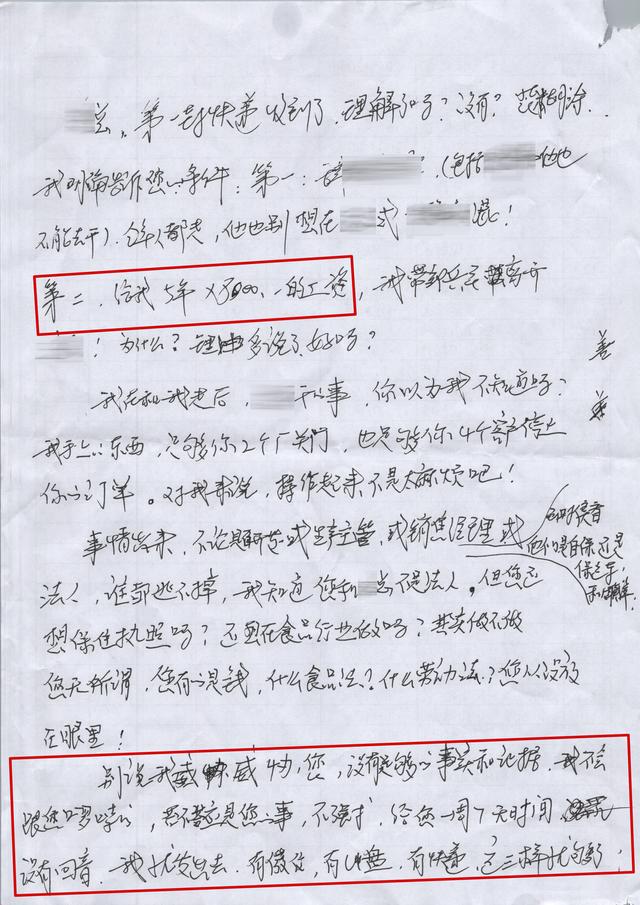 总，第一封快递收到了，理解了吗？没有？
我明确告诉您条件：第一：请 （包括 他也
不能去干）．全人都走，他也别想在 或 混！
第二．给我5年×，的工资，我带郭兵兵离开
！为什么？理由多说了好吗？
善
我在和我走后， 事，你以为我不知道吗？
我手上东西，足够你2个厂关门，也足够你4个客户停止
你的订单。对我来说，操作起来不是太麻烦吧！
事情出来，不论是研发或生产主管，或销售经理或
他们是自保还是
保老子，
法人，谁都逃不掉，我知道您和 总不是法人。但您还
想保住执照吗？还想在食品行业做吗？其实做不做
您无所谓，您有的是钱，什么食品法？什么劳动法？您从没放
在眼里！
别说我威威胁您，没有足够的事实和证据．我不会
跟您啰嗦的，答不答应是您的事，不强求，给您一周7天时间
没有回音．我就发出去．有微信，有U盘，有快递，这三样就够了